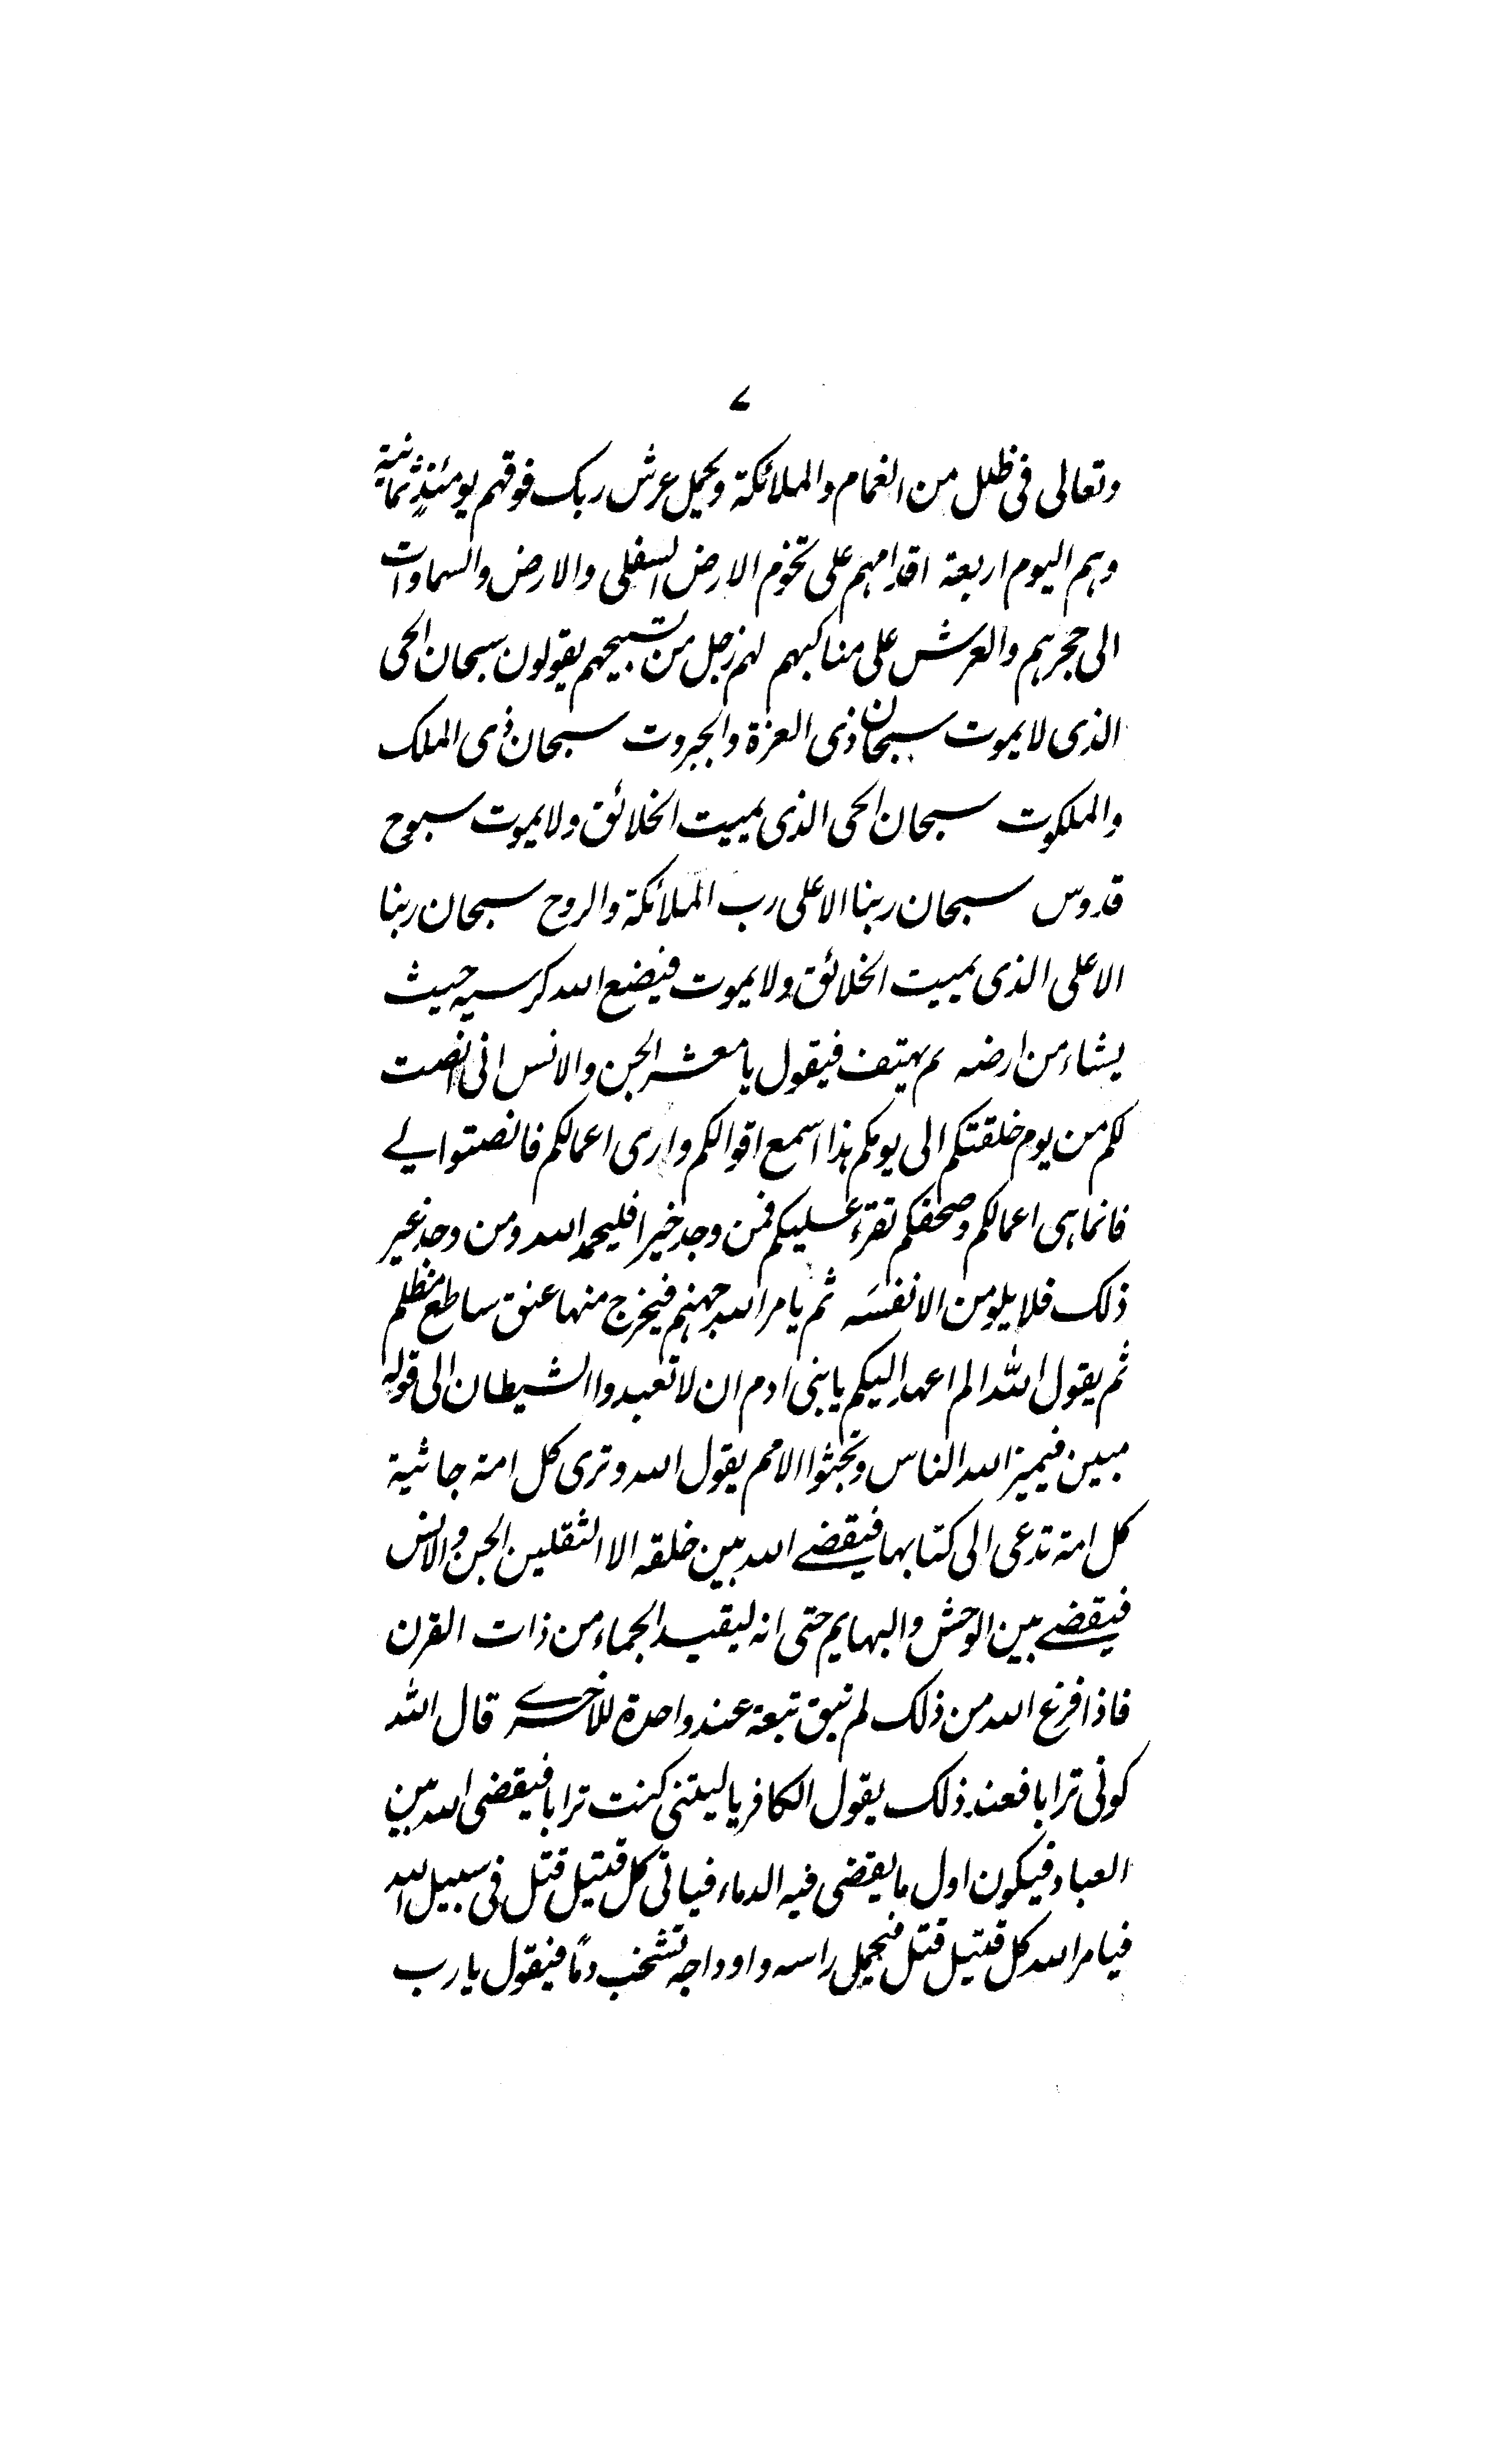 ۷
وتعالى فى ظلل من الغمام والملائكة ويحمل عرش ربك فوقهم يومئذٍ ثمانية
وهم اليوم اربعة اقدامهم على تخوم الارض السفلى والارض والسماوات
الى حجرهم والعرش على مناكبهم لهم زجل من تسبيحهم يقولون سبحان الحى
الذى لا يموت سبحان ذى العزة والجبروت سبحان ذى الملك
والملكوت سبحان الحى الذى يميت الخلائق ولا يموت سبوح
قدوس سبحان ربنا الاعلى رب الملائكة والروح سبحان ربنا
الاعلى الذى يميت الخلائق ولا يموت فيضع الله كرسيه حيث
يشاء من ارضه ثم يهتف فيقول يا معشر الجن والانس انى انصت
لكم من يوم خلقتكم الى يومكم هذا اسمع اقوالكم وارى اعمالكم فانصتوا لے
فانما هى اعمالكم وصحفكم تقرء عليكم فمن وجد خيرا فليحمد الله ومن وجد غير
ذلك فلا يلومن الا نفسَه ثم يامر الله جهنم فيخرج منها عنق ساطع مظلم
ثم يقول الله الم اعهد اليكم يا بنى ادم ان لا تعبدوا الشيطان الى قوله
مبين فيميز الله الناس وتجثوا الامم يقول الله وترى كل امة جاثية
كل امة تدعى الى كتابها فيقضے الله بين خلقه الا الثقلين الجن والانس
فيقضے بين الوحش والبهايم حتى انه ليقيد الجماء من ذات القرن
فاذا فرغ الله من ذلك لم تبق تبعة عند واحدة للاخرے قال الله
كونى ترابا فعند ذلك يقول الكافر يا ليتنى كنت ترابا فيقضى الله بين
العباد فيكون اول ما يقضى فيه الدماء فياتى كل قتيل قتل فى سبيل الله
فيامر الله كل قتيل قتل فيحمل راسه واوداجه تشخب دمًا فيقول يا رب